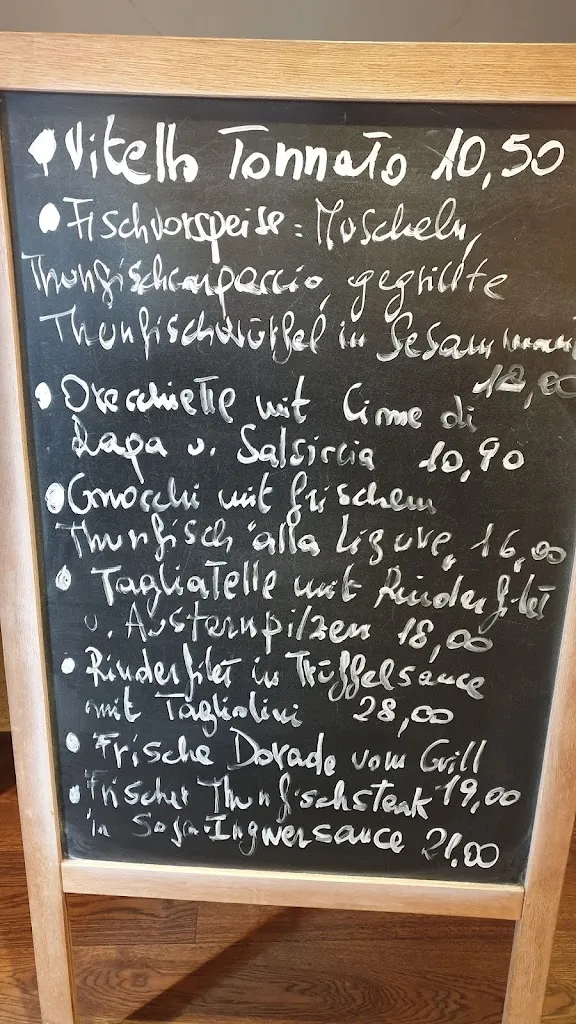 Vitello Tonnato 10,50
Fischvorspeise: Muscheln,
Thunfischcarpaccio, gegrillte
Thunfischwürfel in Sesam
12,00
Orecchiette mit Cime di
Rapa u. Salsiccia 10,90
Gnocchi mit frischem
Thunfisch "alla Ligure, 16,00
Tagliatelle mit Rinderfilet
u. Austernpilzen 18,00
Rinderfilet in Trüffelsauce
mit Tagliolini 28,00
Frische Dorade vom Grill
Frischer Thunfischsteak 19,00
in Soja-Ingwersauce 21,00